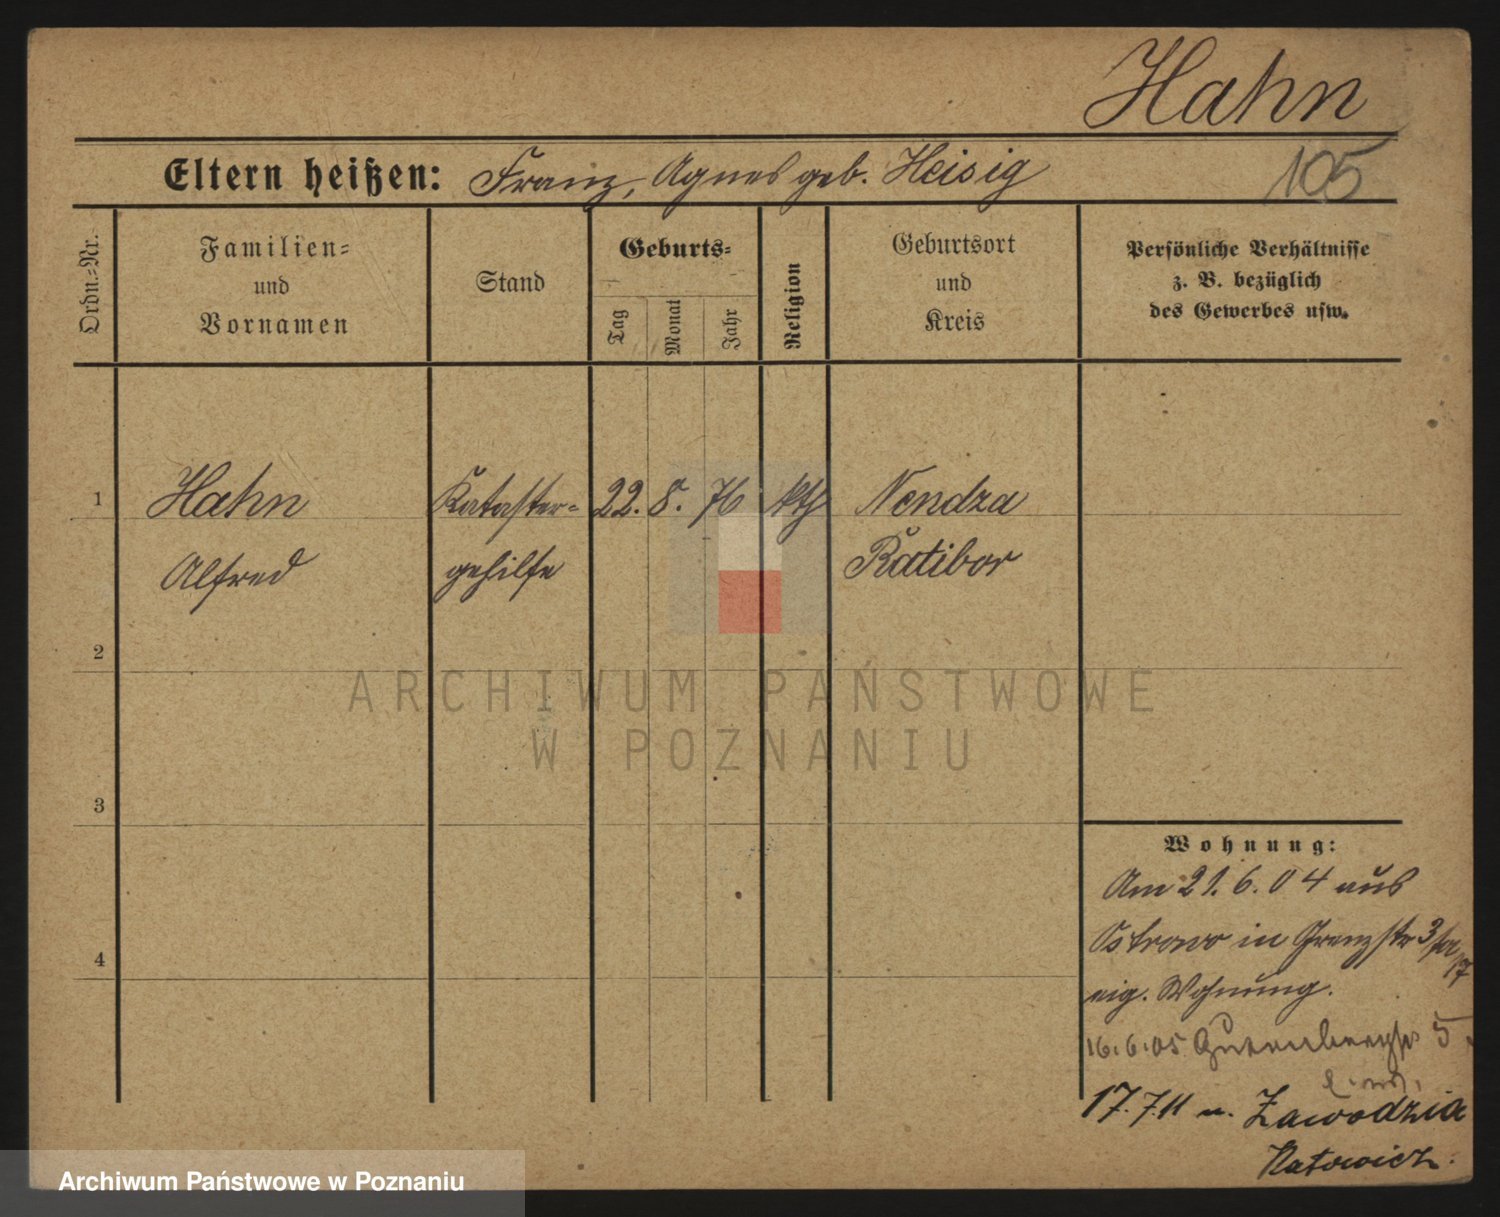 Hahn
Eltern heißen: Franz, Agnes geb. Heisig
105
Ordn.=Nr.
Familien=
und
Vornamen
Stand
Geburts=
Tag
Monat
Jahr
Religion
Geburtsort
und
Kreis
Persönliche Verhältnisse
z. B. bezüglich
des Gewerbes usw.
1 Hahn Kataster= 22. 8. 76 kth Nendza
Alfred gehilfe Ratibor
2
3
4
ARCHIWUM PAŃSTWOWE
W POZNANIU
Wohnung:
Am 21.6.04 aus
Ostrowo in Grenzstr 3
17
eig. Wohnung.
16.6.05 5
17.7.11 n. Zawodzia
Katowicz.
Archiwum Państwowe w Poznaniu